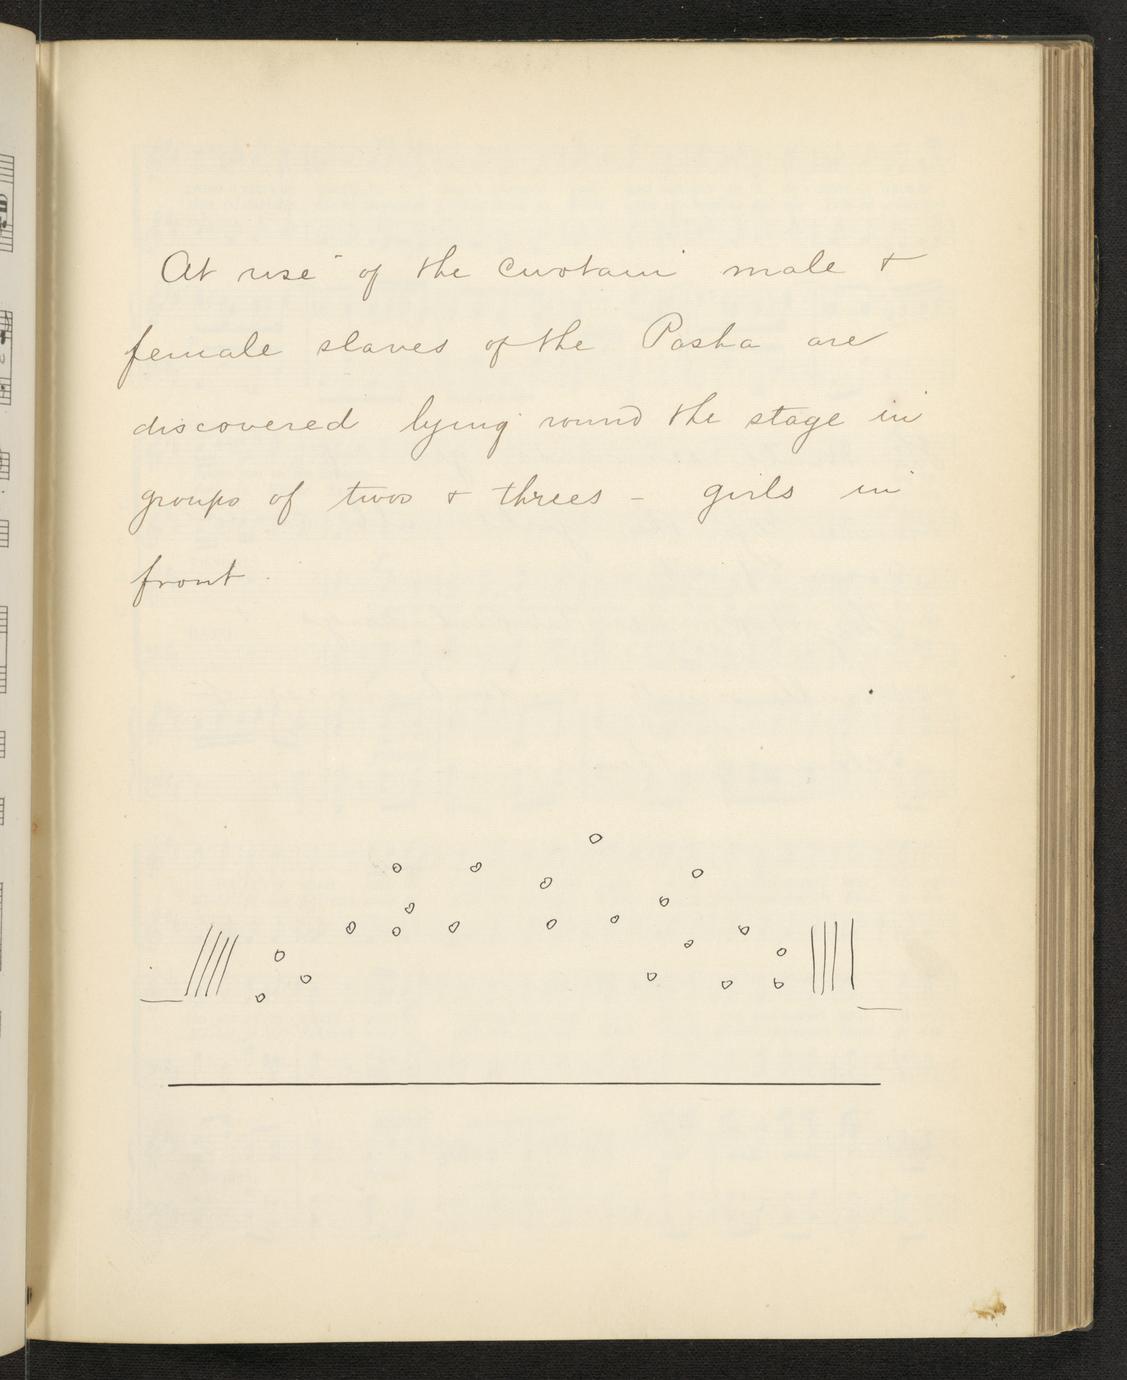 At rise of the curtain male &
female slaves of the Pasha are
discovered lying round the stage in
groups of twos & threes – girls in
front.